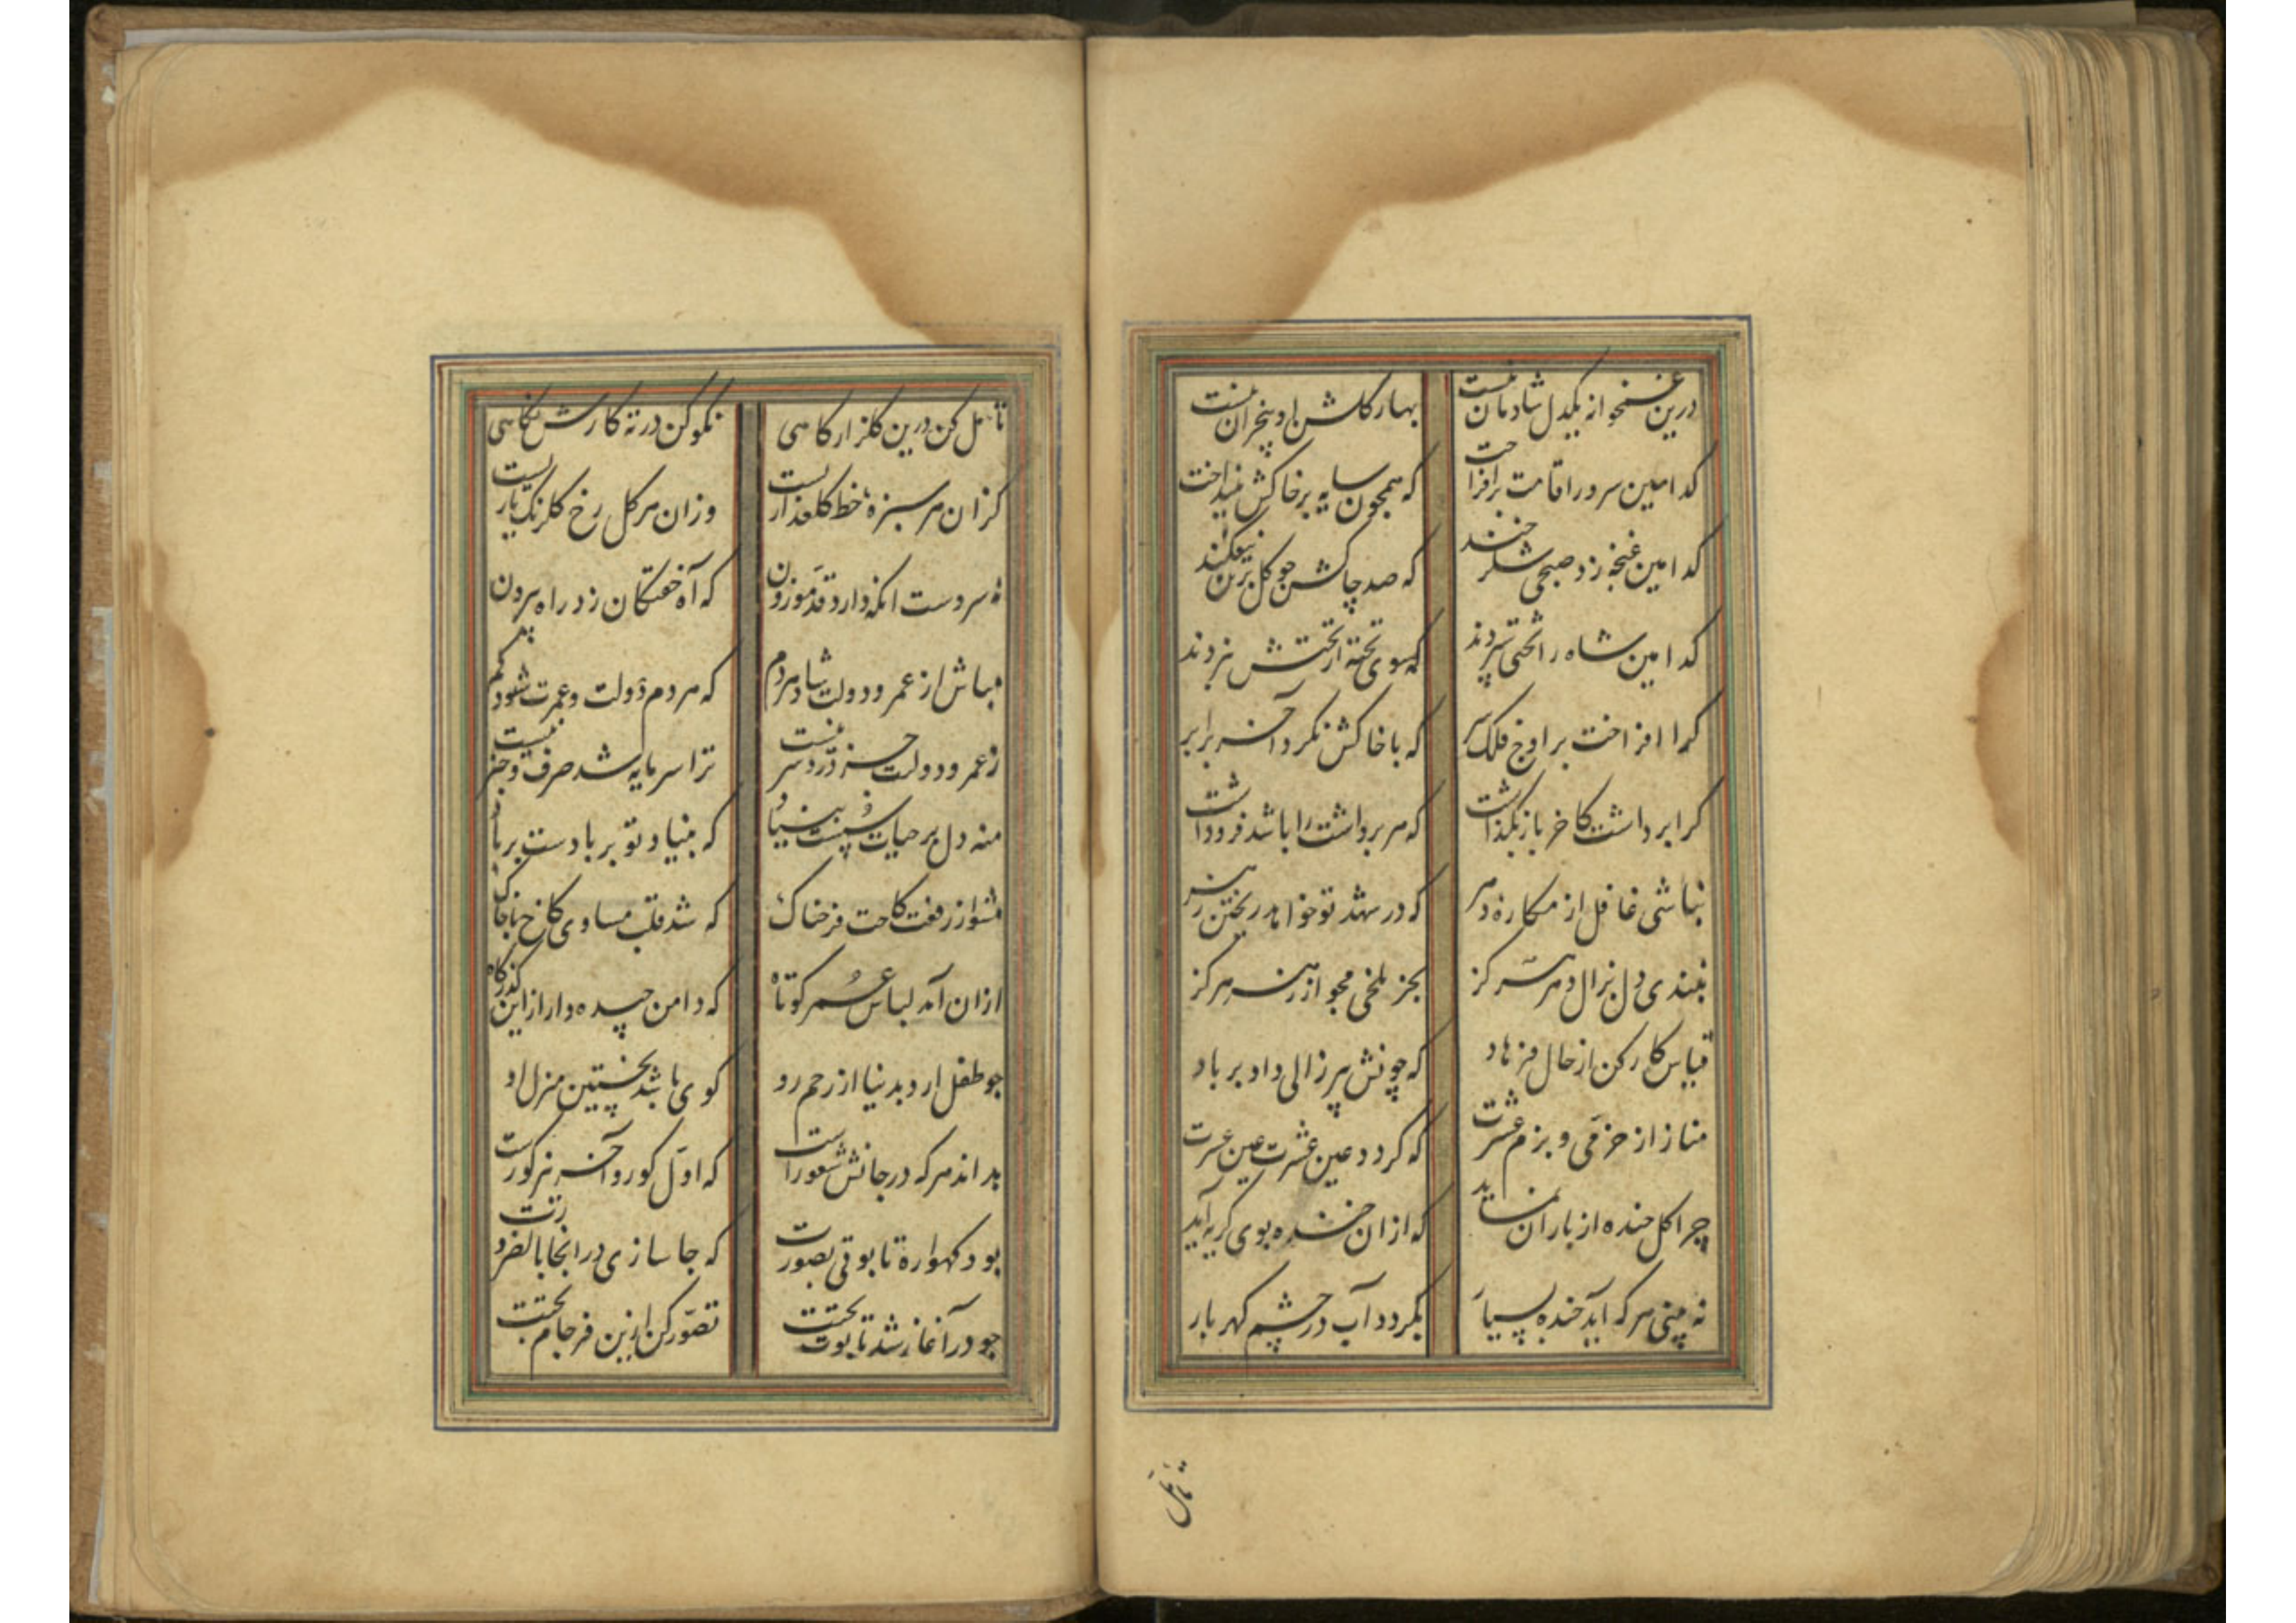 درین غمخانه یکدل شادمان نیست بهار گلشن او بیخزان نیست
کدامین سرو را قامت برافراخت که همچون سایه برخاکش نینداخت
کدامین غنچه زد صبحی شکرخند که صد چاکش چو گل بر تن نیفکند
کدامین شاه را تختی سپردند که سوی تخته از تختش نبردند
کرا افراخت بر اوج فلک سر که با خاکش نکرد آخر برابر
کرا برداشت کاخر باز نگذاشت که هر برداشت را باشد فروداشت
نباشی غافل از مکاره دهر که در شهد تو خواهد ریختن زهر
نبندی دل بزال دهر هرگز بجز تلخی مجو از زهر هرگز
قیاس کار کن از حال فرهاد که چونش پیر زالی داد بر باد
مناز از خرّمی و بزم عشرت که گردد عین عشرت عین عسرت
چرا گل خنده از باران نماید که از آن خنده بوی گریه آید
نه بینی هر که آید خنده بسیار بگردد آب در چشم گهربار
تأمل
تأمل کن درین گلزار گاهی نکو کن در ته کارش نگاهی
کزان هر سبزهٔ خط گلعذاریست وزان هر گل رخ گلرنگ یاریست
نه سروست انکه دارد قدّ موزون که آه خفتگان زد راه بیرون
مباش از عمر و دولت شاد هردم که هر دم دولت و عمرت شود کم
ز عمر و دولتت جز دردسر نیست ترا سرمایه شد صرف و خبر نیست
منه دل بر حیات سست بنیاد که بنیاد تو بر بادست بر باد
مشو از رفعت کاخت فرحناک که شد قلب مساوی کاخ با خاک
ازان آمد لباس عمر کوتاه که دامن چیده دار از این گذرگاه
چو طفل ارد بدنیا از رحم رو کوی باشد نخستین منزل او
بداند هر که در جانش شعورست که اوّل گور و آخر نیز گورست
بود گهوارهٔ تابوتی بصورت که جا سازی در انجا بالضرورت
چو در آغاز شد تابوت تختت تصوّر کن ازین فرجام بختت